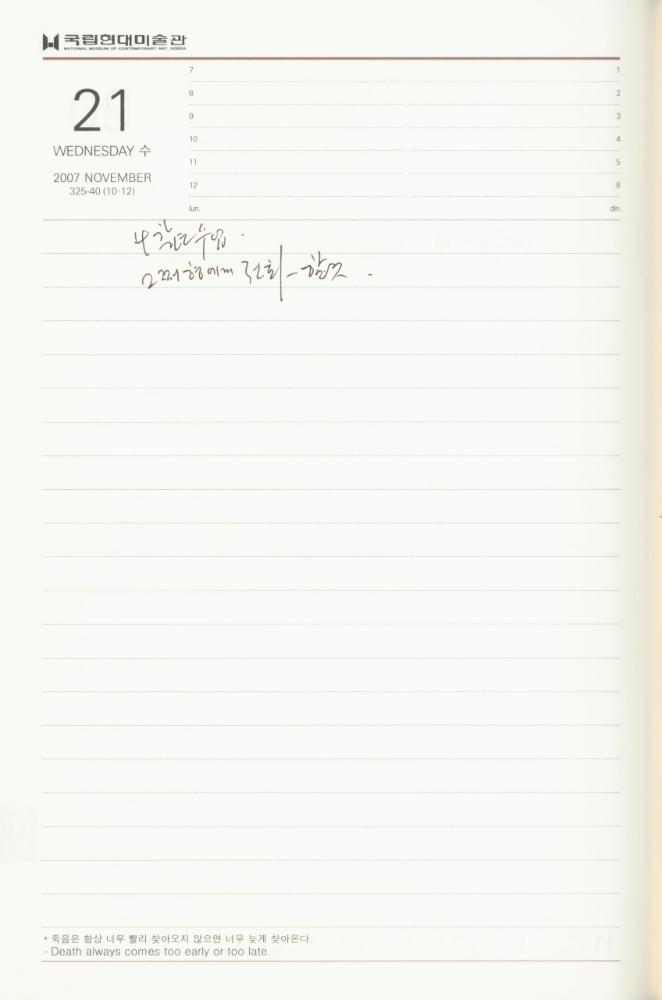 국립현대미술관
NATIONAL MUSEUM OF CONTEMPORARY ART, KOREA
21
WEDNESDAY 수
2007 NOVEMBER
325-40 (10·12)
7
8
9
10
11
12
lun.
1
2
3
4
5
6
din.
수업.
2째형에게 전화
* 죽음은 항상 너무 빨리 찾아오지 않으면 너무 늦게 찾아온다.
- Death always comes too early or too late.